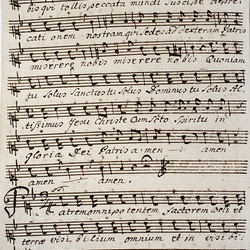 bis qui tollis peccata mundi suscipe depre
cati onem nostram qui sedes ad dexteram Patris
miserere nobis miserere nobis Quoniam
tu Solus Sanctus tu Solus Dominus tu Solus Al
tissimus Jesu Christe Cum Sto Spiritu in
gloria Dei Patris amen amen
amen amen.
Patrem omnipotentem factorem Coeli et
terrae visi bilium omnium et in visi